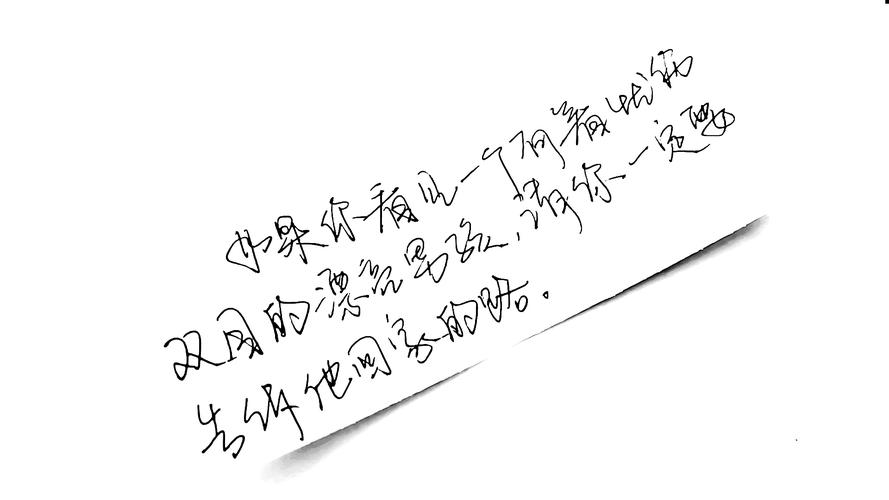 如果你看见一个闭着妖狐
双目的漂亮男孩,请你一定要
告诉他回家的路。